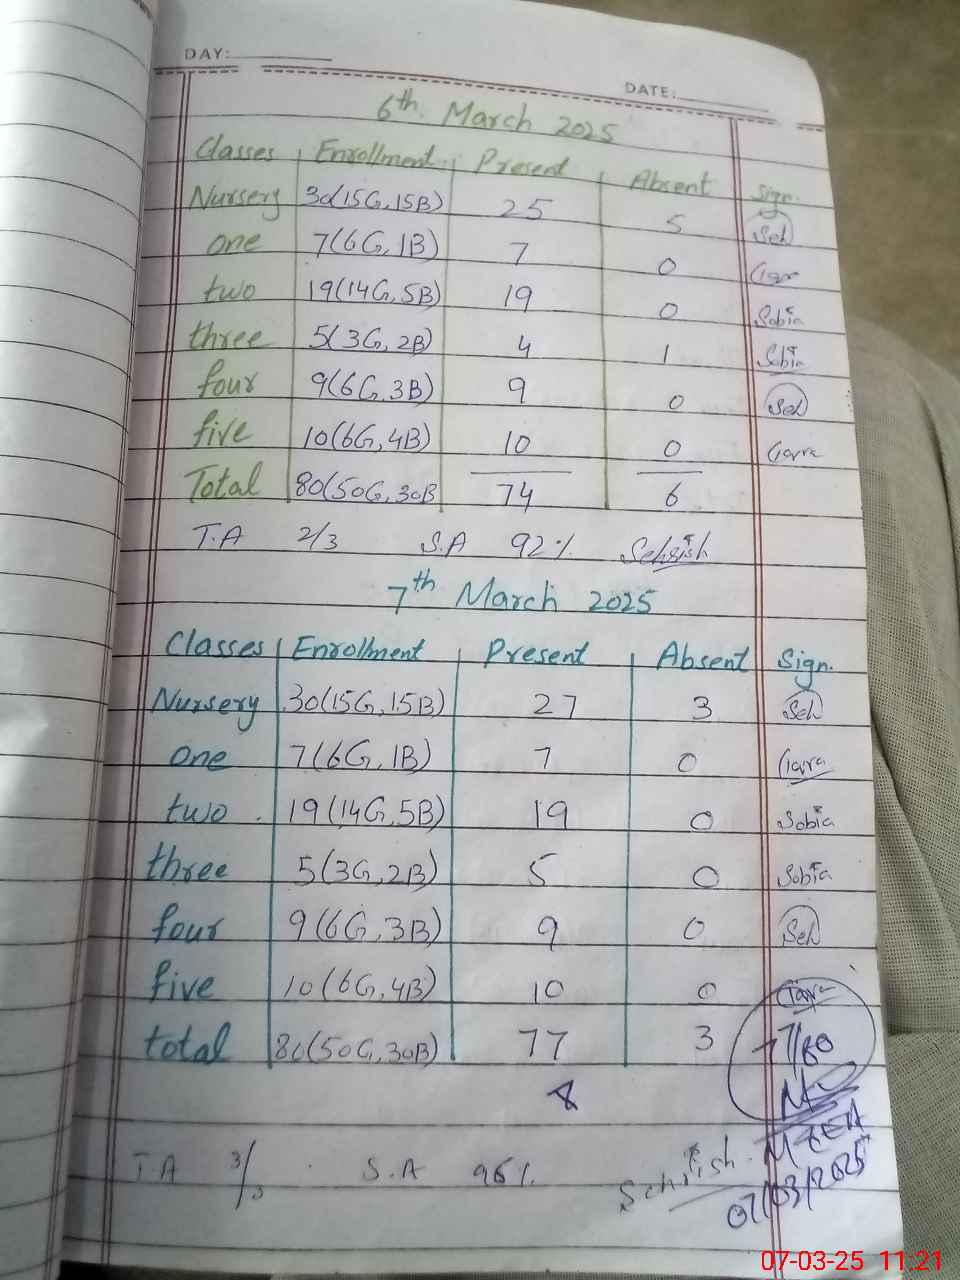 DAY:
DATE:
6th March 2025
Classes Enrollment Present Absent Sign.
Nursery 30(15G,15B) 25 5 Seh
one 7(6G,1B) 7 0
two 19(14G,5B) 19 0 Sobia
three 5(3G,2B) 4 1 Sobia
four 9(6G,3B) 9 0 Seh
five 10(6G,4B) 10 0
Total 80(50G,30B 74 6
T.A 2/3 S.A 92% Sehrish
7th March 2025
Classes Enrollment Present Absent Sign.
Nursery 30(15G,15B) 27 3 Seh
one 7(6G,1B) 7 0
two 19(14G,5B) 19 0 Sobia
three 5(3G,2B) 5 0 Sobia
four 9(6G,3B) 9 0 Seh
five 10(6G,4B) 10 0
total 80(50G,30B) 77 3
T.A 3/3 S.A 96% Sehrish
07/03/2025
07-03-25 11:21